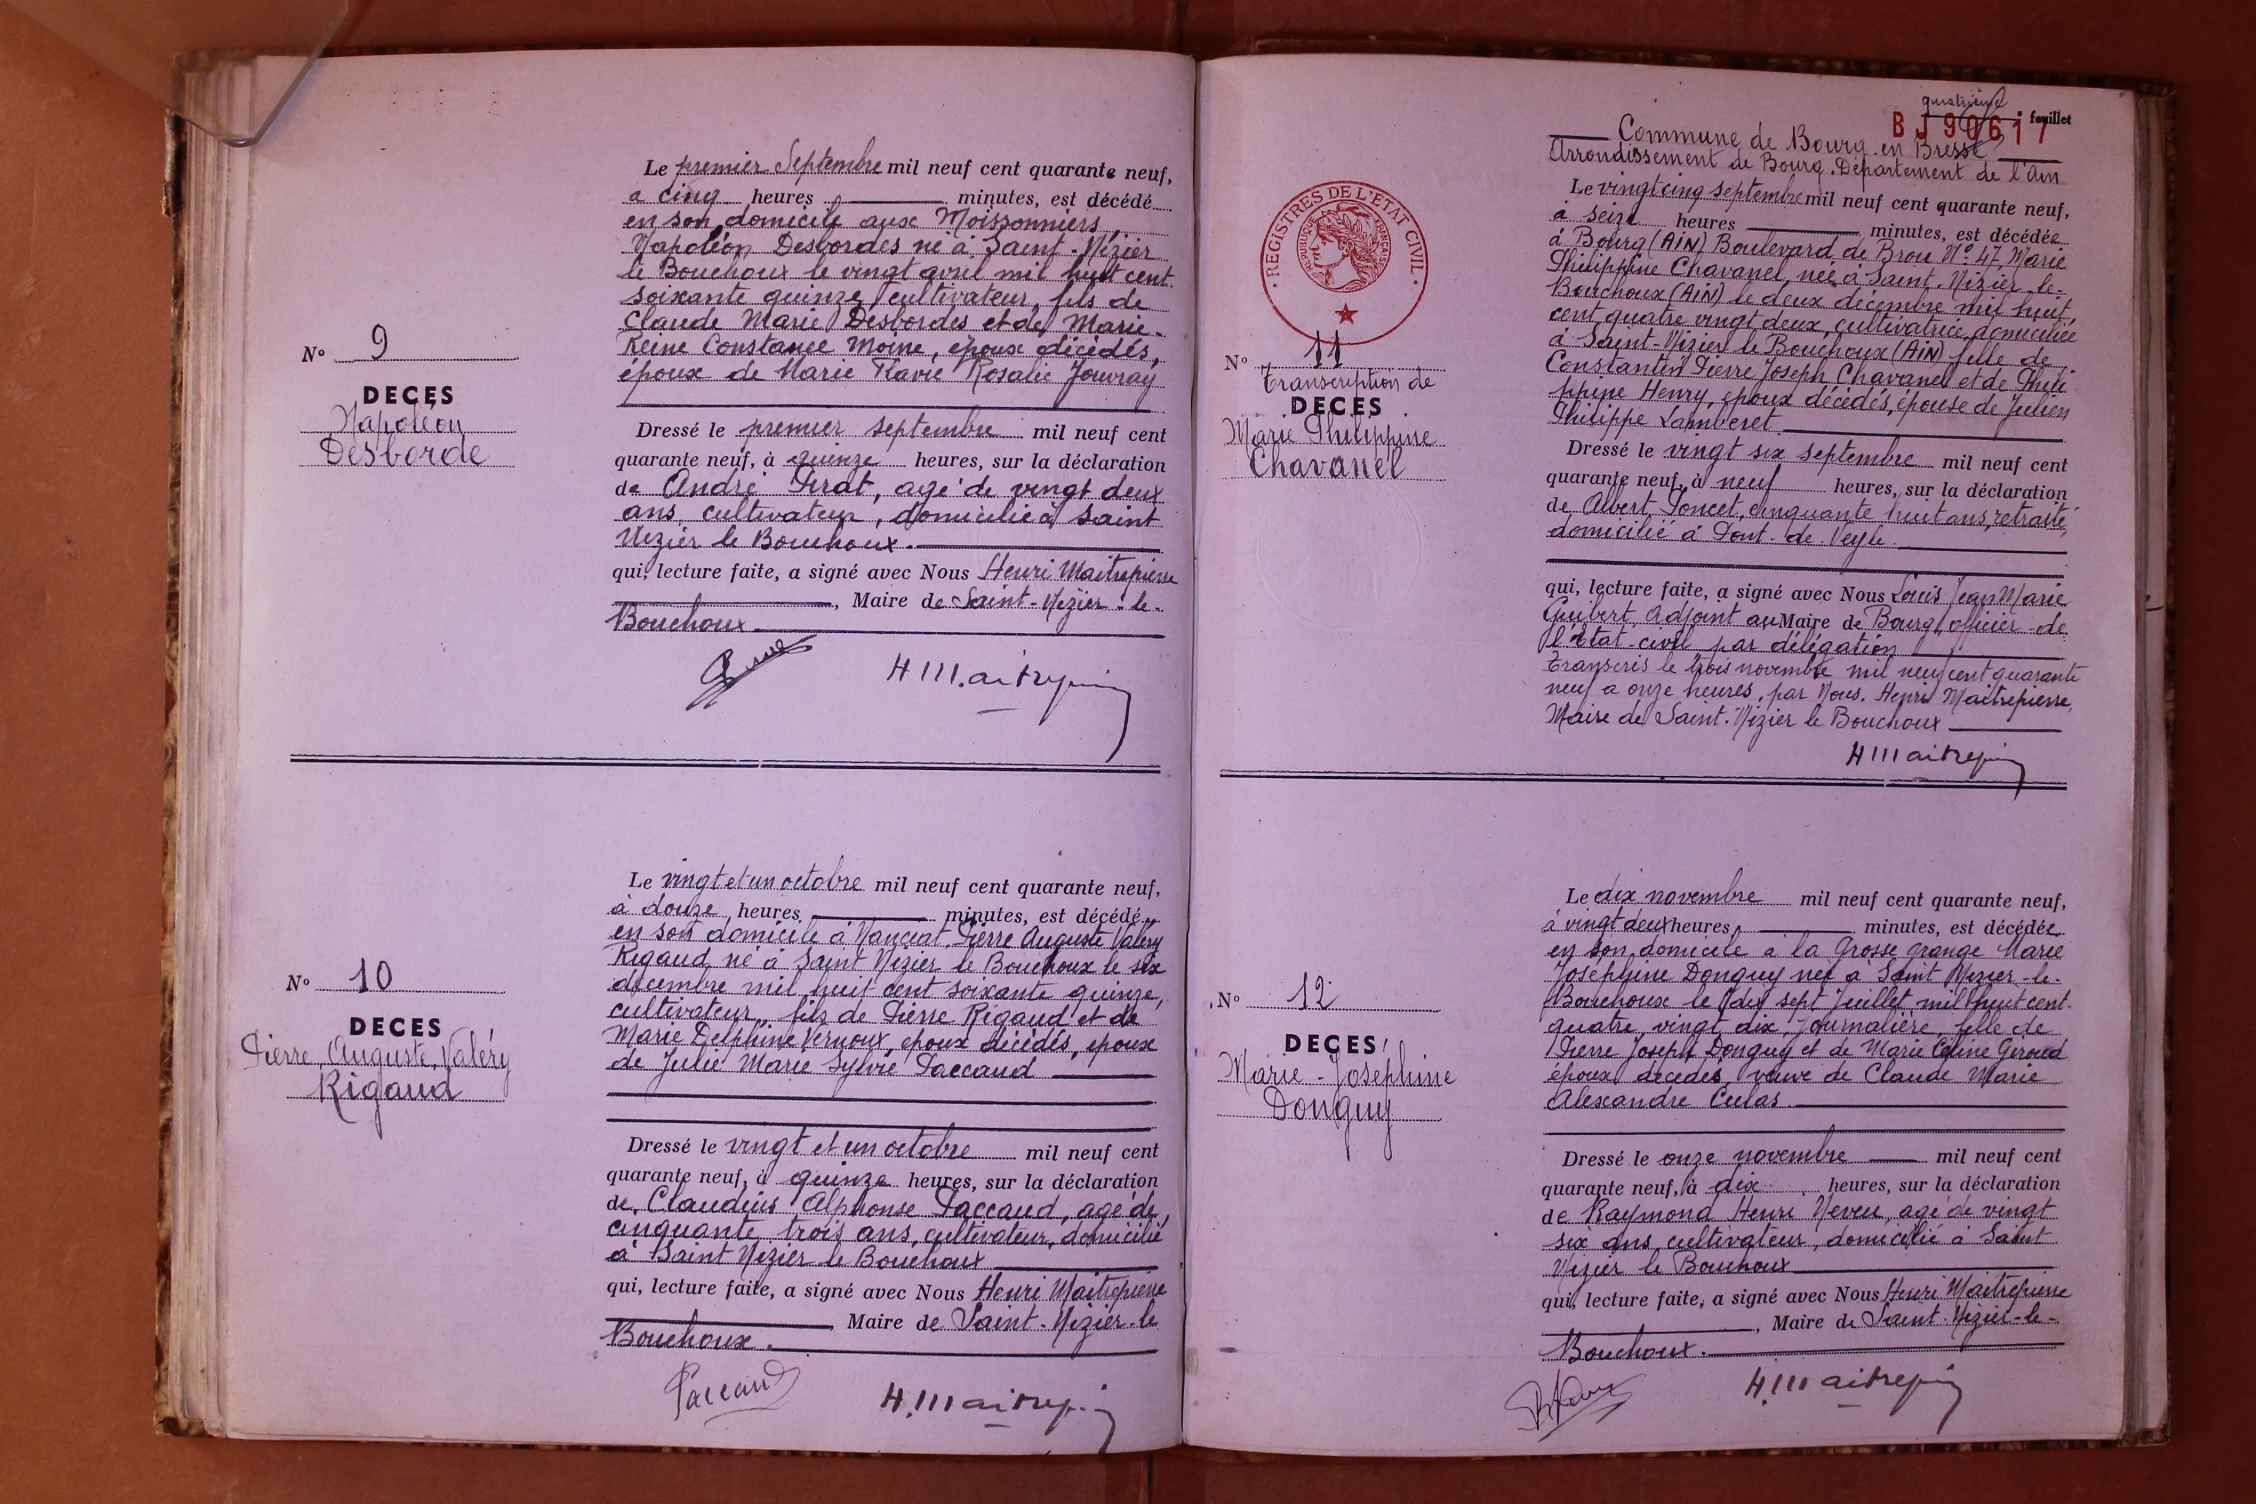 Le premier Septembre mil neuf cent quarante neuf,
a cinq heures minutes, est décédé
en son domicile aux Moissonniers,
Napoléon Desbordes né à Saint-Nizier
le Bouchoux le vingt avril mil huit cent
soixante quinze, cultivateur, fils de
Claude Marie Desbordes et de Marie-
Reine Constance Moine, époux décédés,
époux de Marie Flavie Rosalie Jouvray
N° 9
DECES
Napoléon
Desborde
Dressé le premier septembre mil neuf cent
quarante neuf, à quinze heures, sur la déclaration
de André Pirat, agé de vingt deux
ans, cultivateur, domicilié à Saint
Nizier le Bouchoux.
qui, lecture faite, a signé avec Nous Henri Maitrepierre
, Maire de Saint-Nizier-le-
Bouchoux.
H Maitrepierre
Le vingt et un octobre mil neuf cent quarante neuf,
à douze heures minutes, est décédé
en son domicile à Nanciat, Pierre Auguste Valéry
Rigaud né à Saint Nizier le Bouchoux le six
décembre mil huit cent soixante quinze,
cultivateur, fils de Pierre Rigaud et de
Marie Delphine Vernoux, époux décédés, époux
de Julie Marie Sylvie Paccaud
N° 10
DECES
Pierre, Auguste, Valéry
Rigaud
Dressé le vingt et un octobre mil neuf cent
quarante neuf, à quinze heures, sur la déclaration
de Claudius Alphonse Paccaud, agé de
cinquante trois ans, cultivateur, domicilié
à Saint Nizier le Bouchoux
qui, lecture faite, a signé avec Nous Henri Maitrepierre
, Maire de Saint-Nizier-le
Bouchoux.
Paccaud
H. Maitrepierre
quatrième feuillet
BJ90617
Commune de Bourg-en-Bresse
Arrondissement de Bourg. Département de l'Ain
REGISTRES DE L'ETAT CIVIL
REPUBLIQUE FRANÇAISE
Le vingt cinq septembre mil neuf cent quarante neuf,
à seize heures minutes, est décédée
à Bourg (AiN) Boulevard de Brou N° 47, Marie
Philippine Chavanel, née à Saint-Nizier-le-
Bouchoux (AiN) le deux décembre mil huit
cent quatre vingt deux, cultivatrice, domiciliée
à Saint-Nizier le Bouchoux (AiN) fille de
Constantin Pierre Joseph Chavanel et de Phili-
ppine Henry, époux décédés, épouse de Julien
Philippe Lamberet
N° 11
Transcription de
DECES
Marie Philippine
Chavanel
Dressé le vingt six septembre mil neuf cent
quarante neuf, à neuf heures, sur la déclaration
de Albert Poncet, cinquante huit ans, retraité,
domicilié à Pont-de-Veyle
qui, lecture faite, a signé avec Nous Louis Jean Marie
Guibert, Adjoint au Maire de Bourg, officier de
l'état-civil par délégation
Transcris le trois novembre mil neuf cent quarante
neuf a onze heures, par Nous, Henri Maitrepierre,
Maire de Saint-Nizier le Bouchoux
H Maitrepierre
Le dix novembre mil neuf cent quarante neuf,
à vingt deux heures minutes, est décédée
en son domicile à la Grosse Grange Marie
Joséphine Donguy née à Saint Nizier-le-
Bouchoux le dix sept Juillet mil huit cent
quatre vingt dix, Journalière, fille de
Pierre Joseph Donguy et de Marie Céline Giroud
époux décédés, veuve de Claude Marie
Alexandre Culas.
N° 12
DECES
Marie-Joséphine
Donguy
Dressé le onze novembre mil neuf cent
quarante neuf, à dix heures, sur la déclaration
de Raymond Henri Neveu, agé de vingt
six ans, cultivateur, domicilié à Saint
Nizier le Bouchoux
qui, lecture faite, a signé avec Nous Henri Maitrepierre
, Maire de Saint-Nizier-le-
Bouchoux.
H. Maitrepierre